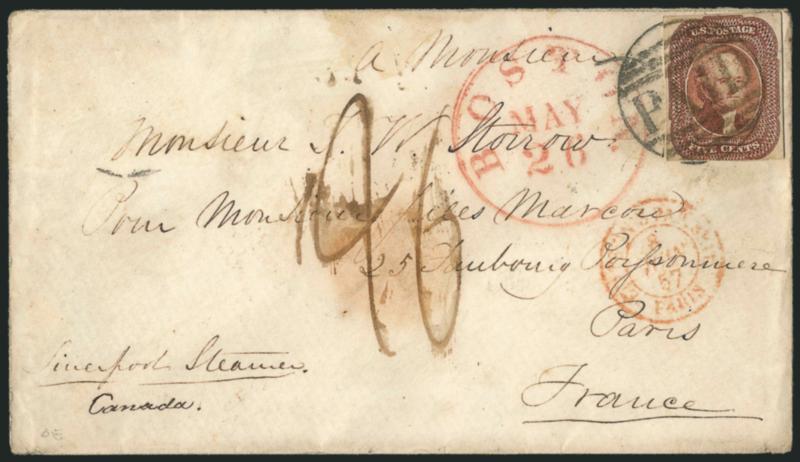 à Monsieur
Monsieur S. W. Storrow
Pour Monsieur Jules Marcou
25 Faubourg Poissonniere
Paris
France
Liverpool Steamer.
Canada.
BOSTON
MAY
26
U.S. POSTAGE
FIVE CENTS
PAID
57
PARIS